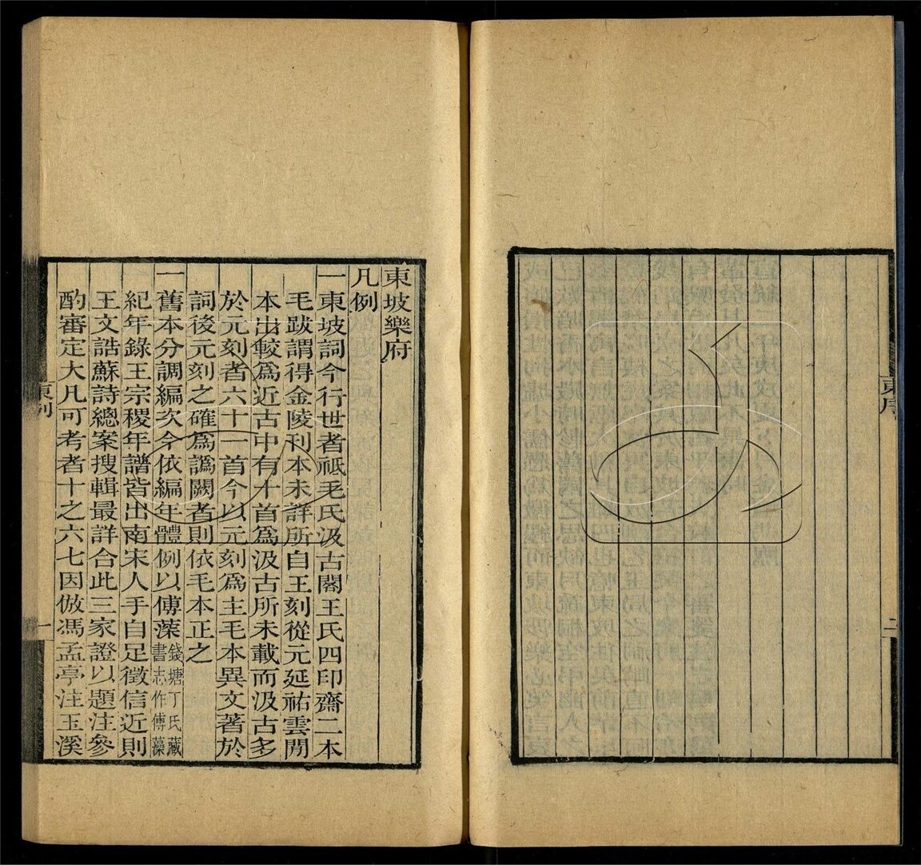 東坡樂府
凡例
一東坡詞今行世者祇毛氏汲古閣王氏四印齋二本
毛跋謂得金陵刊本未詳所自王刻從元延祐雲閒
本出較爲近古中有十首爲汲古所未載而汲古多
於元刻者六十一首今以元刻爲主毛本異文著於
詞後元刻之確爲譌闕者則依毛本正之
一舊本分調編次今依編年體例以傅藻錢塘丁氏藏書志作傅藻
紀年錄王宗稷年譜皆出南宋人手自足徵信近則
王文誥蘇詩總案搜輯最詳合此三家證以題注參
酌審定大凡可考者十之六七因倣馮孟亭注玉溪
東例
一